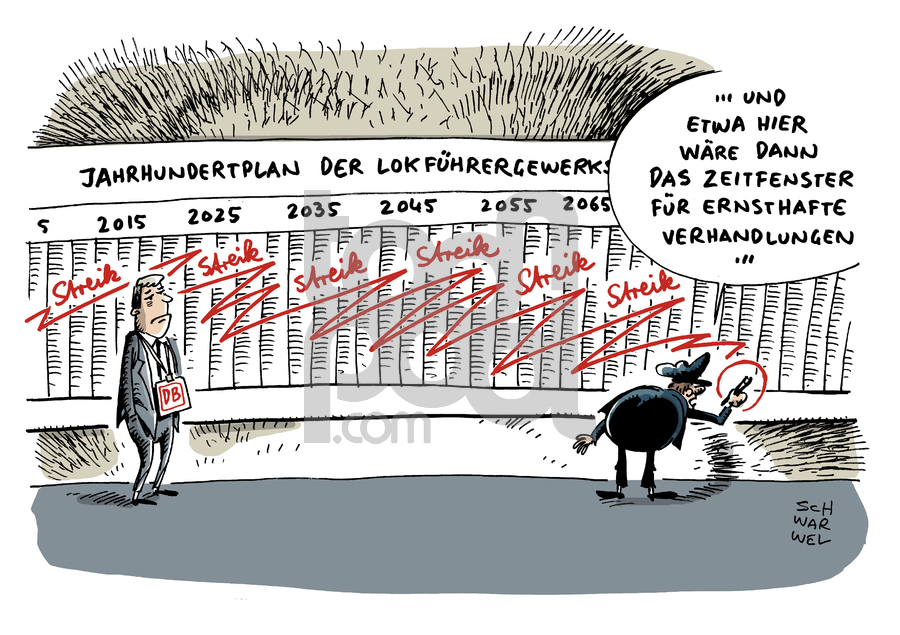 ... UND
ETWA HIER
WÄRE DANN
DAS ZEITFENSTER
FÜR ERNSTHAFTE
VERHANDLUNGEN
...
JAHRHUNDERTPLAN DER LOKFÜHRERGEWERKS
5 2015 2025 2035 2045 2055 2065
Streik Streik Streik Streik Streik Streik
DB
toonpool
.com
SCH
WAR
WEL